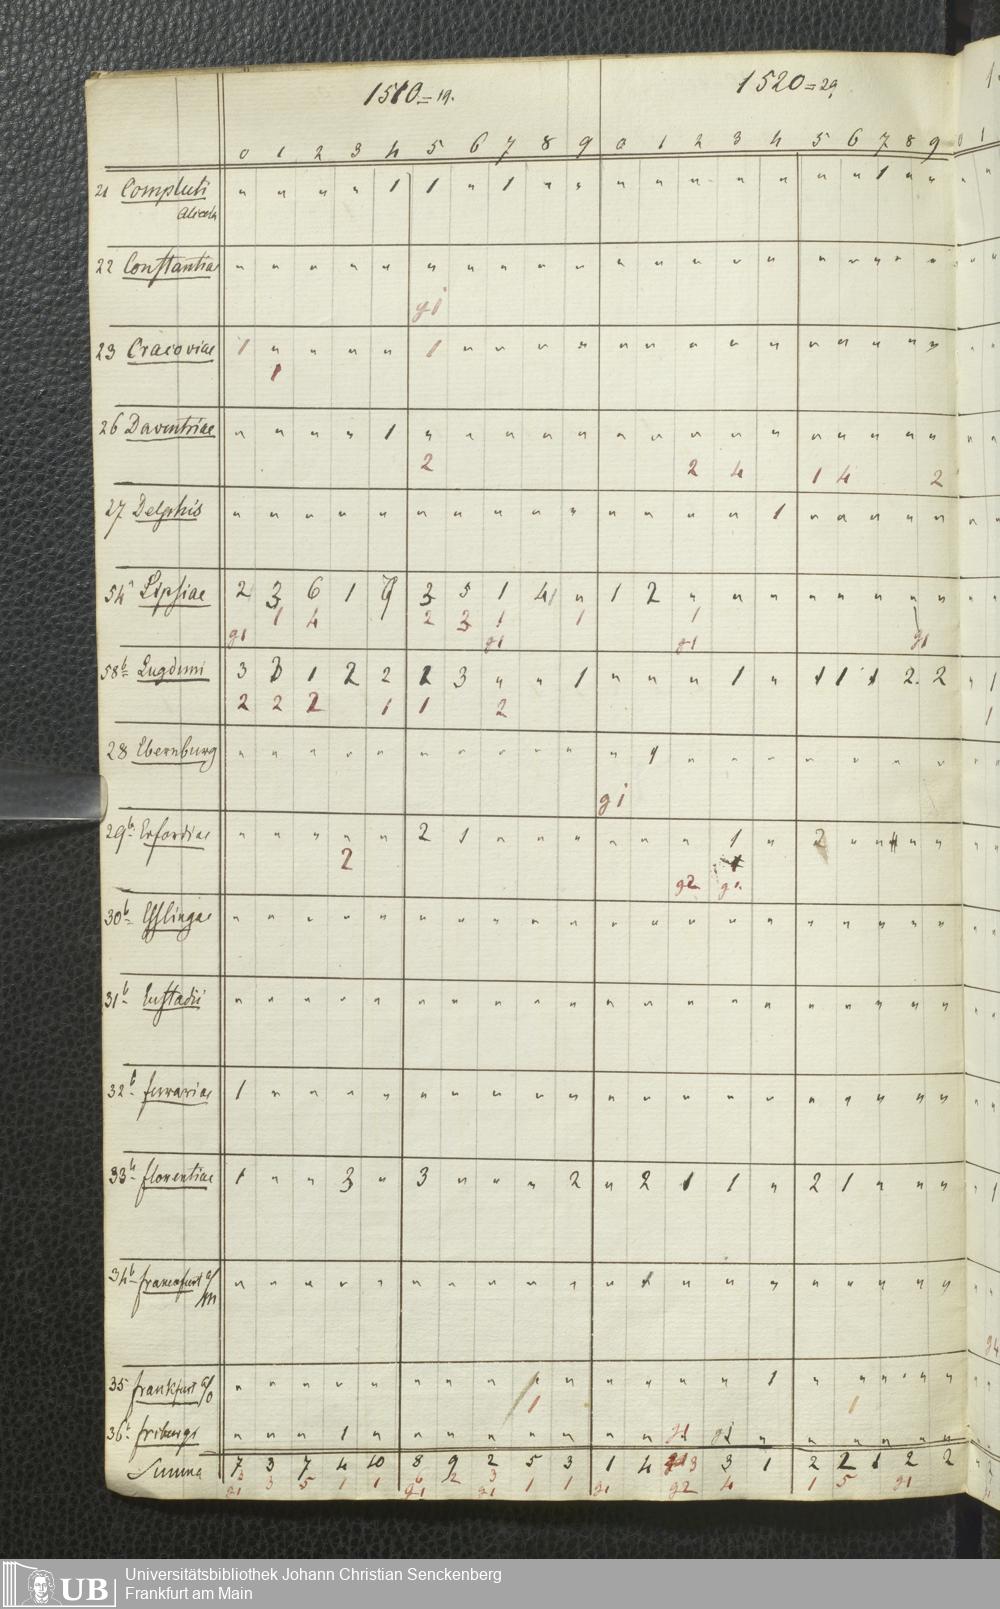 1510=19. 1520=29.
0 1 2 3 4 5 6 7 8 9 0 1 2 3 4 5 6 7 8 9 0 1
21 Compluti " " " " 1 1 " 1 " " " " " " " " " 1 " "
Alcala
22 Constantiae " " " " " " " " " " " " " " " " " " " "
gi
23 Cracoviae 1 " " " " 1 " " " " " " " " " " " " " "
1
26 Daventriae " " " " 1 " " " " " " " " " " " " " " "
2 2 4 1 4 2
27 Delphis " " " " " " " " " " " " " " 1 " " " " "
54 Lipsiae 2 3 6 1 9 3 5 1 4 " 1 2 " " " " " " " "
1 4 2 3 1 1 1
g1 g1 g1 g1
58b Lugduni 3 3 1 2 2 1 3 " " 1 " " " 1 " 1 1 1 2 2 " 1
2 2 2 1 1 2 1
28 Ebernburg " " " " " " " " " " " 1 " " " " " " " "
gi
29b Erfordiae " " " " " 2 1 " " " " " " 1 " 2 " " " "
2
g2 g1
30b Esslingae " " " " " " " " " " " " " " " " " " " "
31b Eustadii " " " " " " " " " " " " " " " " " " " "
32b ferrariae 1 " " " " " " " " " " " " " " " " " " "
33b florentiae 1 " " 3 " 3 " " " 2 " 2 1 1 " 2 1 " " " " 1
34b francofurt a/M " " " " " " " " " " " 1 " " " " " " " "
g4
35 frankfurt a/O " " " " " " " " " " " " " " 1 " " " " "
1 1
36b friburgi " " " 1 " " " " " " " " g1 g1 " " " " " "
Summa 7 3 7 4 10 8 9 2 5 3 1 4 3 3 1 2 2 1 2 2
3 3 5 1 1 6 2 3 1 1 g1 g2 4 1 5 g1
g1 g1 g1
Universitätsbibliothek Johann Christian Senckenberg
UB Frankfurt am Main